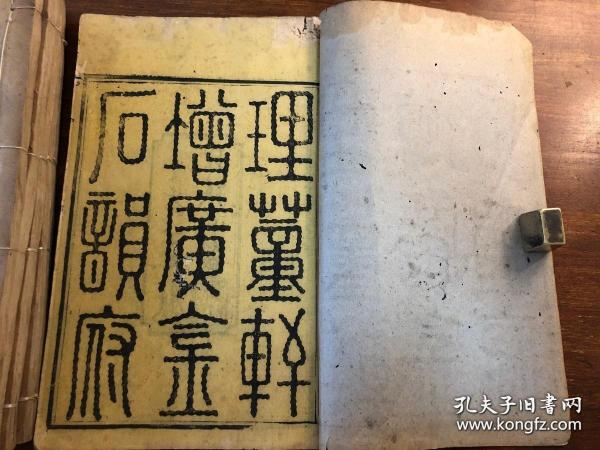 理董軒
增廣金
石韻府
孔夫子旧书网
www.kongfz.com